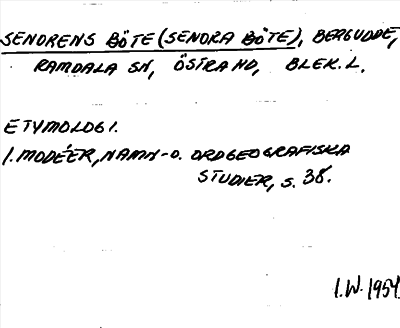 SENDRENS BÖTE (SENDRA BÖTE), BERGUDDE,
RAMDALA SN, ÖSTRA HD, BLEK. L.
ETYMOLOGI.
I. MODÉER, NAMN- O. ORDGEOGRAFISKA
STUDIER, S. 38.
I.W. 1954